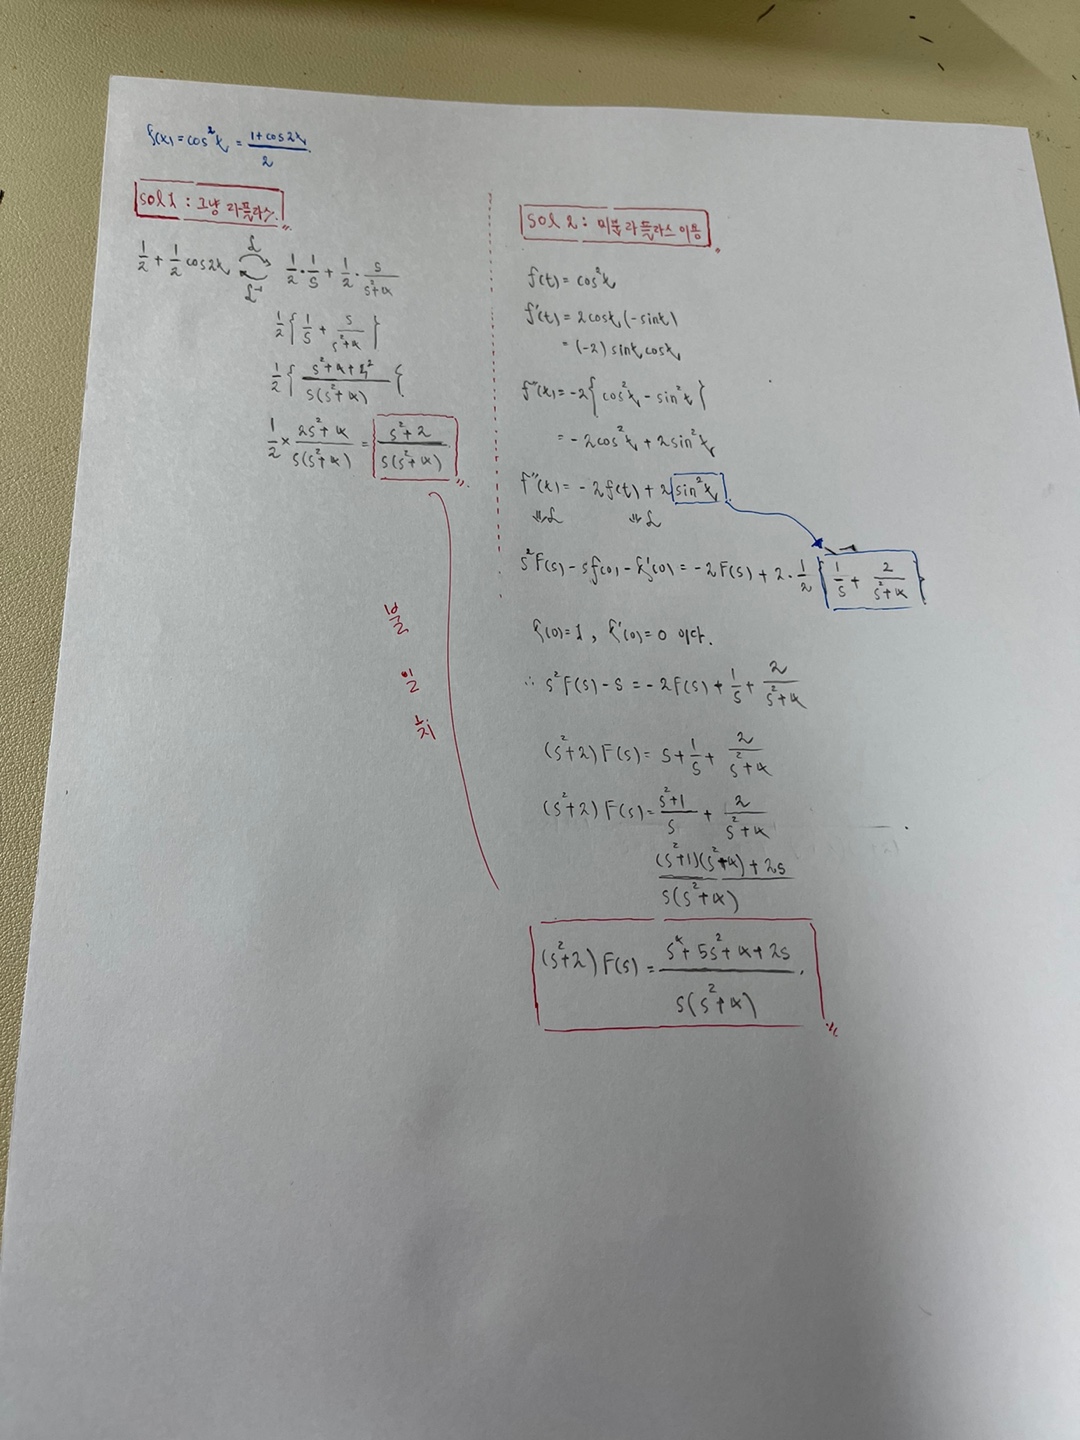 f(t) = cos²t = (1+cos2t)/2
sol 1 : 그냥 라플라스.
1/2 + 1/2 cos2t ⇄ 1/2 · 1/s + 1/2 · s/(s²+4)
ℒ
ℒ⁻¹
1/2 { 1/s + s/(s²+4) }
1/2 { (s²+4+s²)/(s(s²+4)) }
1/2 × (2s²+4)/(s(s²+4)) = (s²+2)/(s(s²+4))
불
일
치
sol 2 : 미분 라플라스 이용
f(t) = cos²t
f'(t) = 2cost(-sint)
= (-2) sint cost
f''(t) = -2{cos²t - sin²t}
= -2cos²t + 2sin²t
f''(t) = -2f(t) + 2 sin²t
⇓ℒ ⇓ℒ
s²F(s) - sf(0) - f'(0) = -2F(s) + 2 · 1/2 { 1/s + 2/(s²+4) }
f(0)=1, f'(0)=0 이다.
∴ s²F(s) - s = -2F(s) + 1/s + 2/(s²+4)
(s²+2) F(s) = s + 1/s + 2/(s²+4)
(s²+2) F(s) = (s²+1)/s + 2/(s²+4)
((s²+1)(s²+4) + 2s)/(s(s²+4))
(s²+2) F(s) = (s⁴+5s²+4+2s)/(s(s²+4))